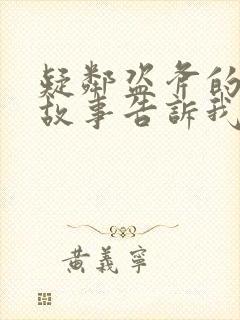 疑鄰盜斧的
故事告訴我
黃義寧